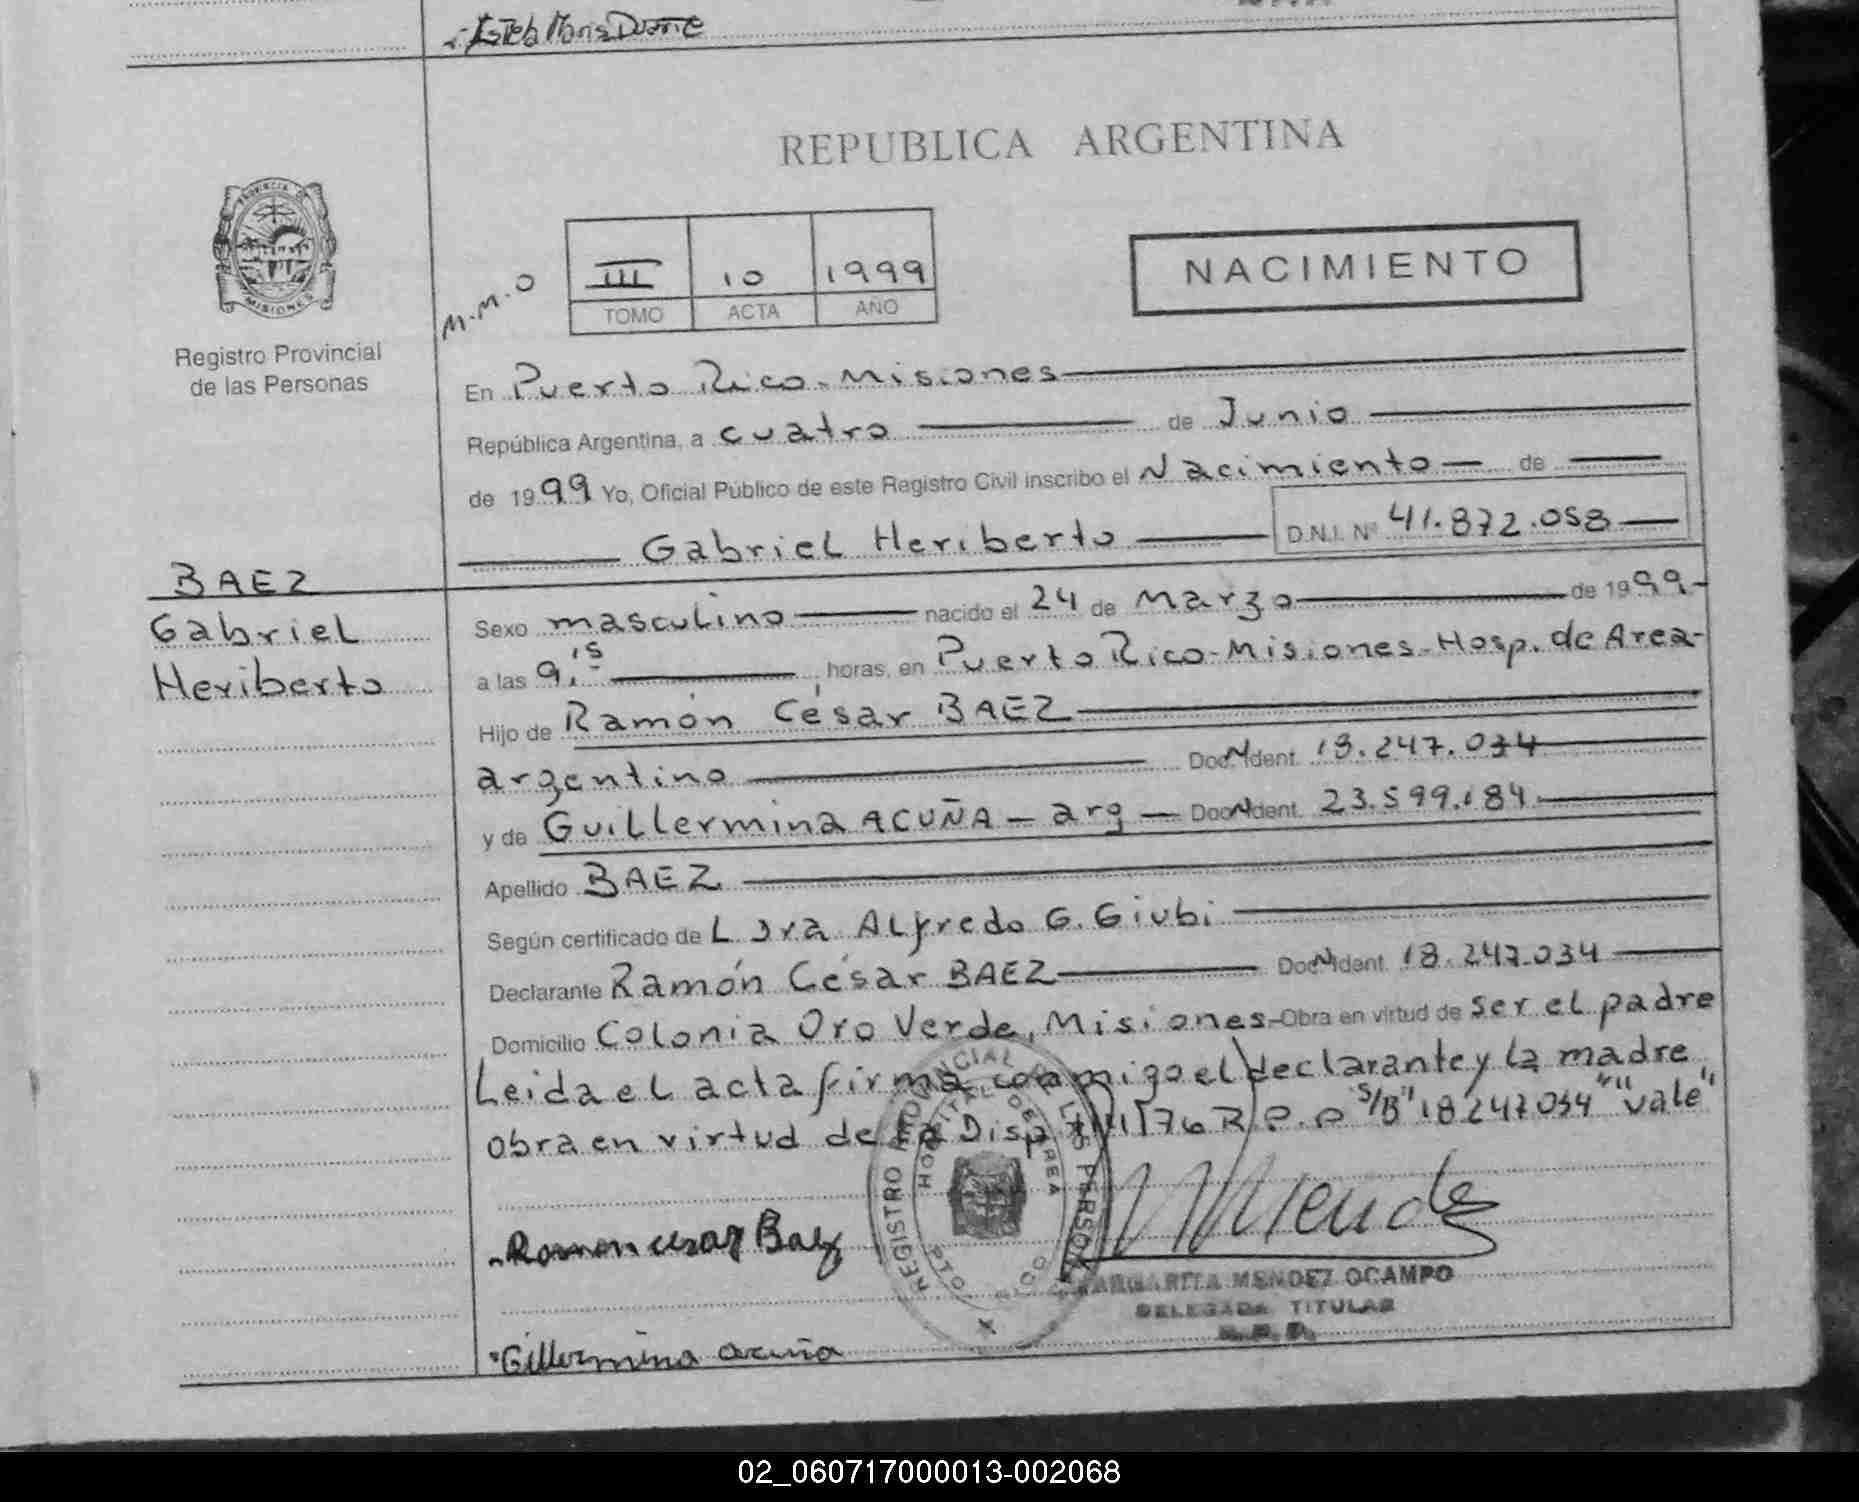 REPUBLICA ARGENTINA
PROVINCIA DE
MISIONES
Registro Provincial
de las Personas
M.M.O
III 10 1999
TOMO ACTA AÑO
NACIMIENTO
En Puerto Rico - Misiones
República Argentina, a cuatro de Junio
de 1999 Yo, Oficial Público de este Registro Civil inscribo el Nacimiento de
Gabriel Heriberto D.N.I. Nº 41.872.058
BAEZ
Gabriel
Heriberto
Sexo masculino nacido el 24 de Marzo de 1999
a las 9,15 horas, en Puerto Rico - Misiones - Hosp. de Area-
Hijo de Ramón César BAEZ
argentino Doc. Ident. 18.247.034
y de Guillermina ACUÑA - arg - Doc. Ident. 23.599.184
Apellido BAEZ
Según certificado de L Dra Alfredo G. Giubi
Declarante Ramón César BAEZ Doc. Ident. 18.247.034
Domicilio Colonia Oro Verde, Misiones - Obra en virtud de ser el padre
Leida el acta firma conmigo el declarante y la madre
obra en virtud de la Disp 76 R.P.P S/B "18247034" "vale"
REGISTRO PROVINCIAL DE LAS PERSONAS
HOSPITAL DE AREA
PTO RICO
Ramon cesar Baez
MARGARITA MENDEZ OCAMPO
DELEGADA TITULAR
R.P.P.
Gillermina acuña
02_060717000013-002068